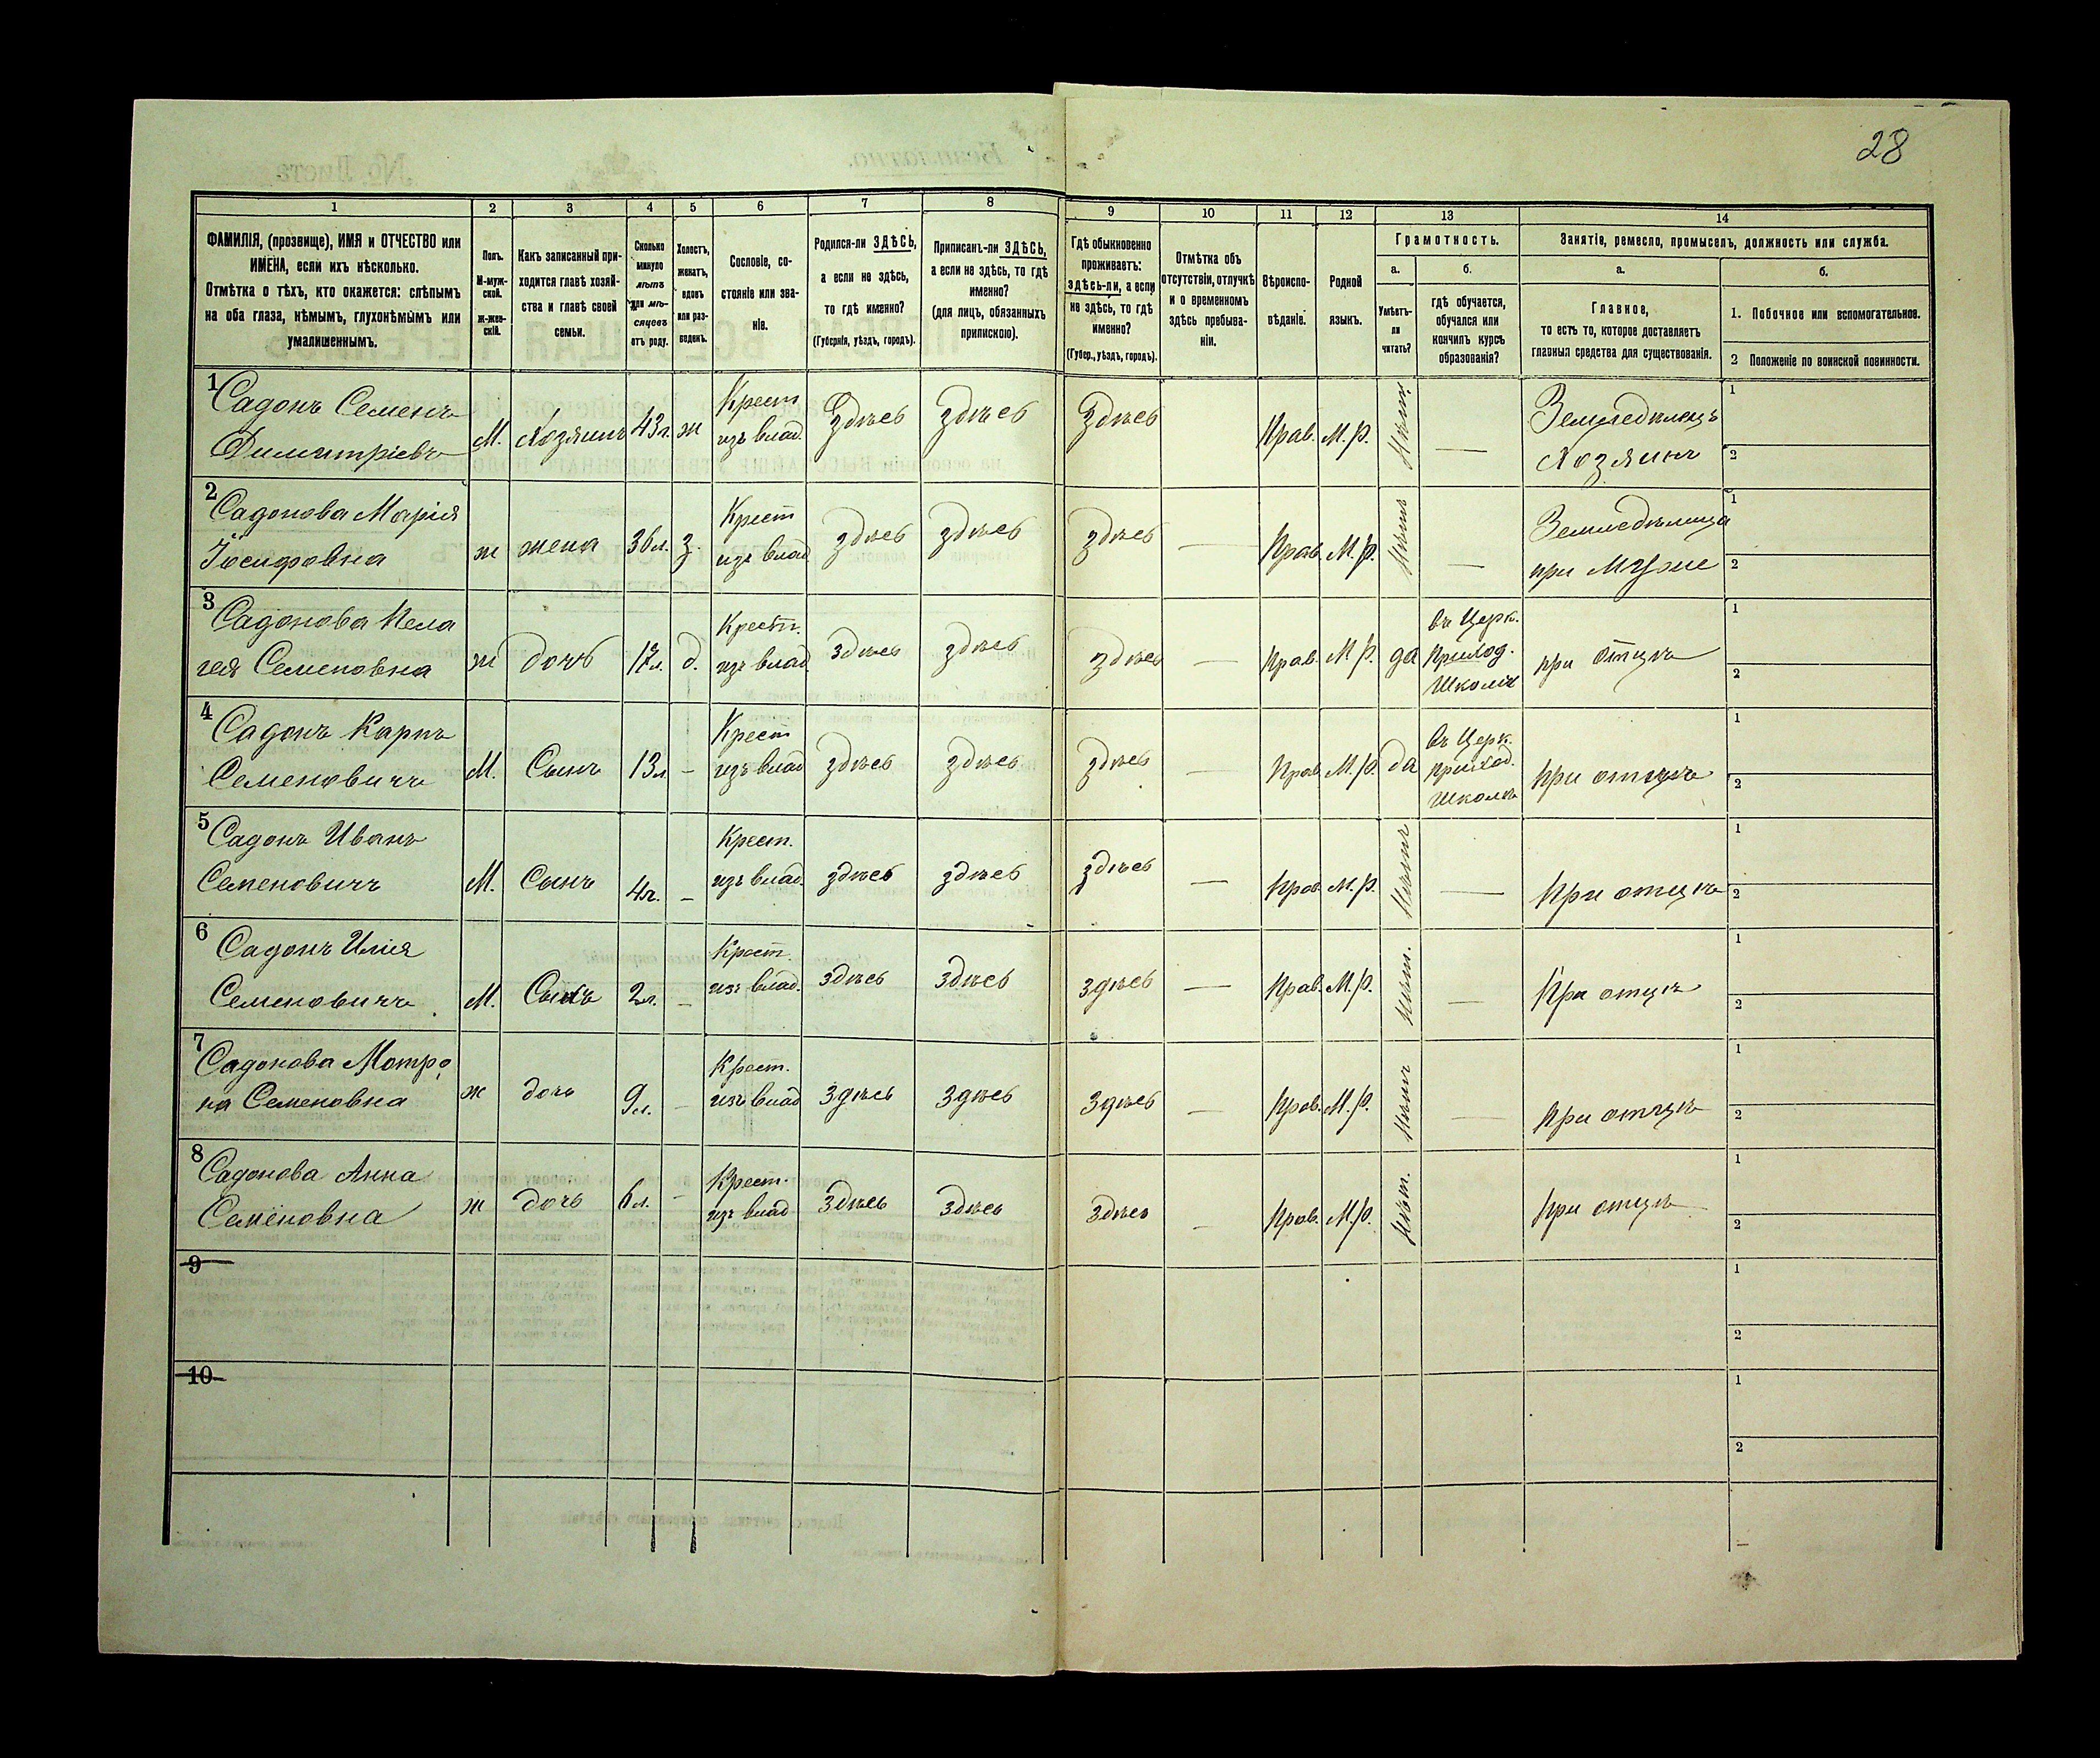 28
1 2 3 4 5 6 7 8 9 10 11 12 13 14
ФАМИЛІЯ, (прозвище), ИМЯ и ОТЧЕСТВО или
ИМЕНА, если ихъ нѣсколько.
Отмѣтка о тѣхъ, кто окажется: слѣпымъ
на оба глаза, нѣмымъ, глухонѣмымъ или
умалишеннымъ.
Полъ.
М-муж-
ской.
Ж-жен-
скій.
Какъ записанный при-
ходится главѣ хозяй-
ства и главѣ своей
семьи.
Сколько
минуло
лѣтъ
или мѣ-
сяцевъ
отъ роду.
Холостъ,
женатъ,
вдовъ
или раз-
веденъ.
Сословіе, со-
стояніе или зва-
ніе.
Родился-ли ЗДѢСЬ,
а если не здѣсь,
то гдѣ именно?
(Губернія, уѣздъ, городъ).
Приписанъ-ли ЗДѢСЬ,
а если не здѣсь, то гдѣ
именно?
(для лицъ, обязанныхъ
припискою).
Гдѣ обыкновенно
проживаетъ:
здѣсь-ли, а если
не здѣсь, то гдѣ
именно?
(Губер., уѣздъ, городъ).
Отмѣтка объ
отсутствіи, отлучкѣ
и о временномъ
здѣсь пребыва-
ніи.
Вѣроиспо-
вѣданіе.
Родной
языкъ.
Грамотность.
а.
Умѣетъ-
ли
читать?
б.
гдѣ обучается,
обучался или
кончилъ курсъ
образованія?
Занятіе, ремесло, промыселъ, должность или служба.
а.
Главное,
то есть то, которое доставляетъ
главныя средства для существованія.
б.
1. Побочное или вспомогательное.
2 Положеніе по воинской повинности.
1 Садонъ Семенъ
Димитріевъ
М. Хозяинъ 43л. ж
Крест
изъ влад.
здѣсь здѣсь здѣсь Прав. М.р. Нѣтъ —
Земледѣлецъ
Хозяинъ
1
2
2 Садонова Марія
Іосифовна
ж жена 36л. з.
Крест
изъ влад.
здѣсь здѣсь здѣсь — Прав. М.р. Нѣтъ —
Земледѣлица
при Мужѣ
1
2
3 Садонова Пела
гея Семеновна
ж дочь 17л. д.
Крест.
изъ влад.
здѣсь здѣсь здѣсь — Прав. М р. да
въ Церк.
Приход.
Школѣ
при отцѣ
1
2
4 Садонъ Карпъ
Семеновичъ
М. Сынъ 13л —
Крест
изъ влад
здѣсь здѣсь здѣсь — Прав М.р. да
въ Церк.
приход.
Школѣ
при отцѣ
1
2
5 Садонъ Иванъ
Семеновичъ
М. Сынъ 4г. —
Крест.
изъ влад.
здѣсь здѣсь здѣсь — Прав. М.р. Нѣтъ —
При отцѣ
1
2
6 Садонъ Илія
Семеновичъ
М. Сынъ 2л. —
Крест.
изъ влад.
здѣсь здѣсь здѣсь — Прав. М.р. Нѣт. —
При отцѣ
1
2
7 Садонова Мотро
на Семеновна
ж дочь 9л. —
Крест.
изъ влад
здѣсь здѣсь здѣсь — Прав. М.р. Нѣтъ —
при отцѣ
1
2
8 Садонова Анна
Семеновна
ж дочь 6л. —
Крест.
изъ влад
здѣсь здѣсь здѣсь — Прав. М.р. Нѣт.
при отцѣ
1
2
9
1
2
10
1
2